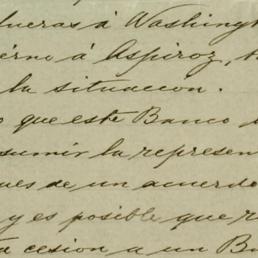 á Washing
á Aspiroz,
la situacion.
que este Banco
sumir la represen
ues de un acuerdo
y es posible que r
cesion a un B